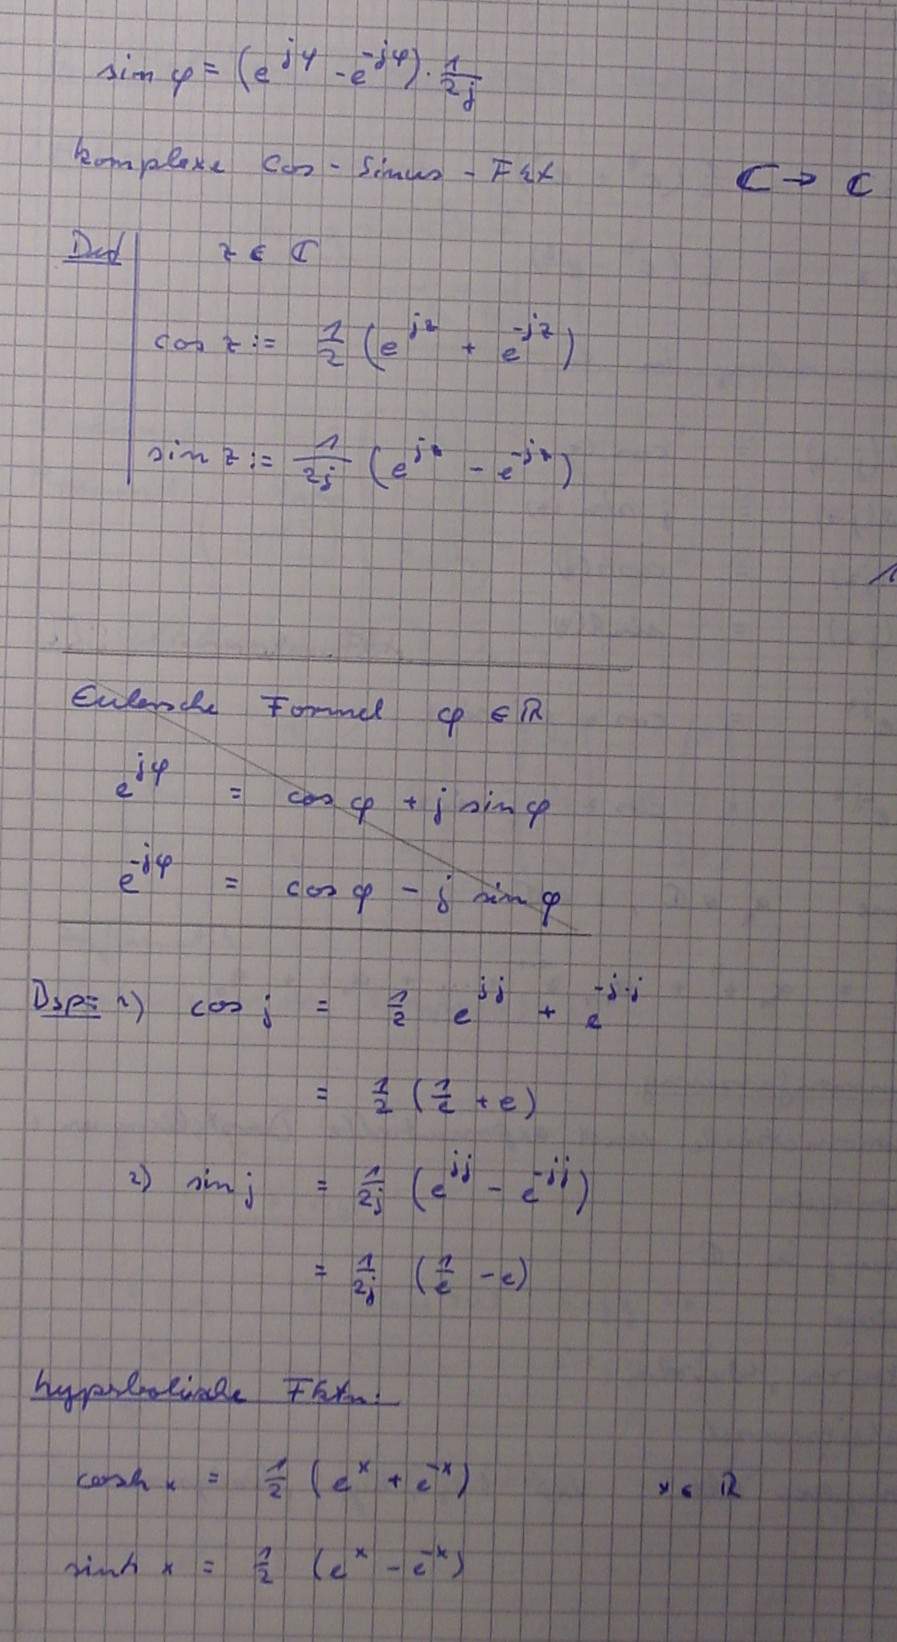 sin φ = (e^{jφ} - e^{-jφ}) · 1/2j
komplexe Cos - Sinus - Fkt ℂ → ℂ
Def z ∈ ℂ
cos z := 1/2 (e^{jz} + e^{-jz})
sin z := 1/2j (e^{jz} - e^{-jz})
1
Eulersche Formel φ ∈ ℝ
e^{jφ} = cos φ + j sin φ
e^{-jφ} = cos φ - j sin φ
Bsp: 1) cos j = 1/2 e^{jj} + e^{-j·j}
= 1/2 (1/e + e)
2) sin j = 1/2j (e^{jj} - e^{-jj})
= 1/2j (1/e - e)
hyperbolische Fktn:
cosh x = 1/2 (e^x + e^{-x}) x ∈ ℝ
sinh x = 1/2 (e^x - e^{-x})